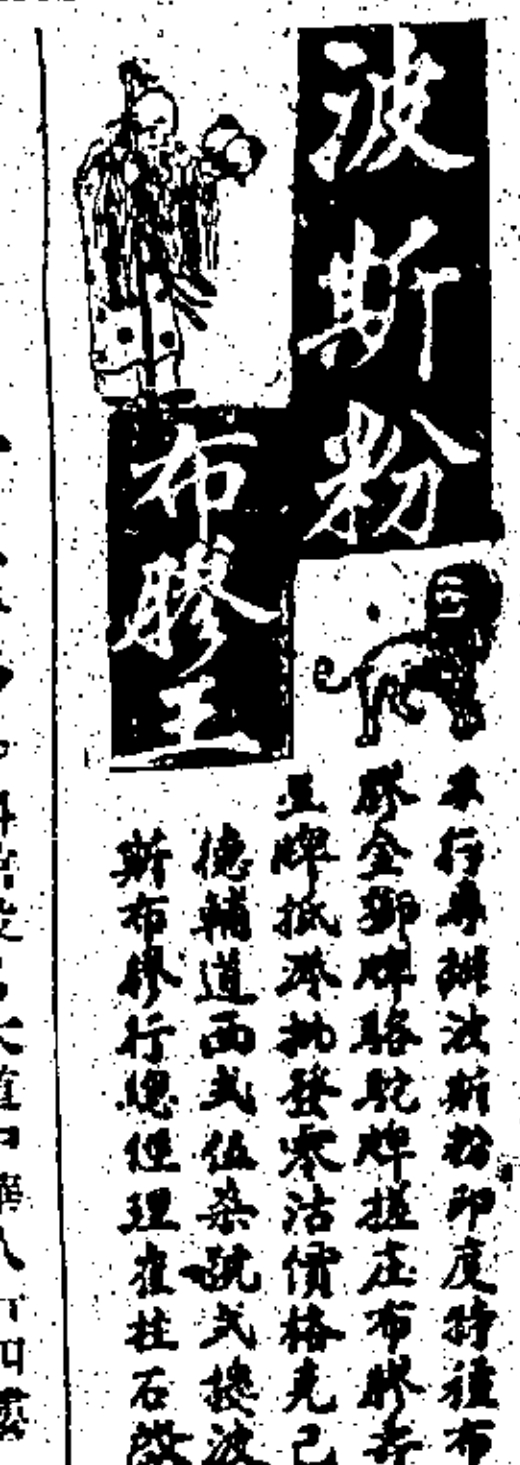 波斯粉
布膠王
本行專辦波斯粉印度特種布
膠金獅牌駱駝牌揸庄布膠壽
星牌抵港批發零沽價格克己
德輔道西式伍柒號式樓波
斯布膠行總經理崔柱石啟